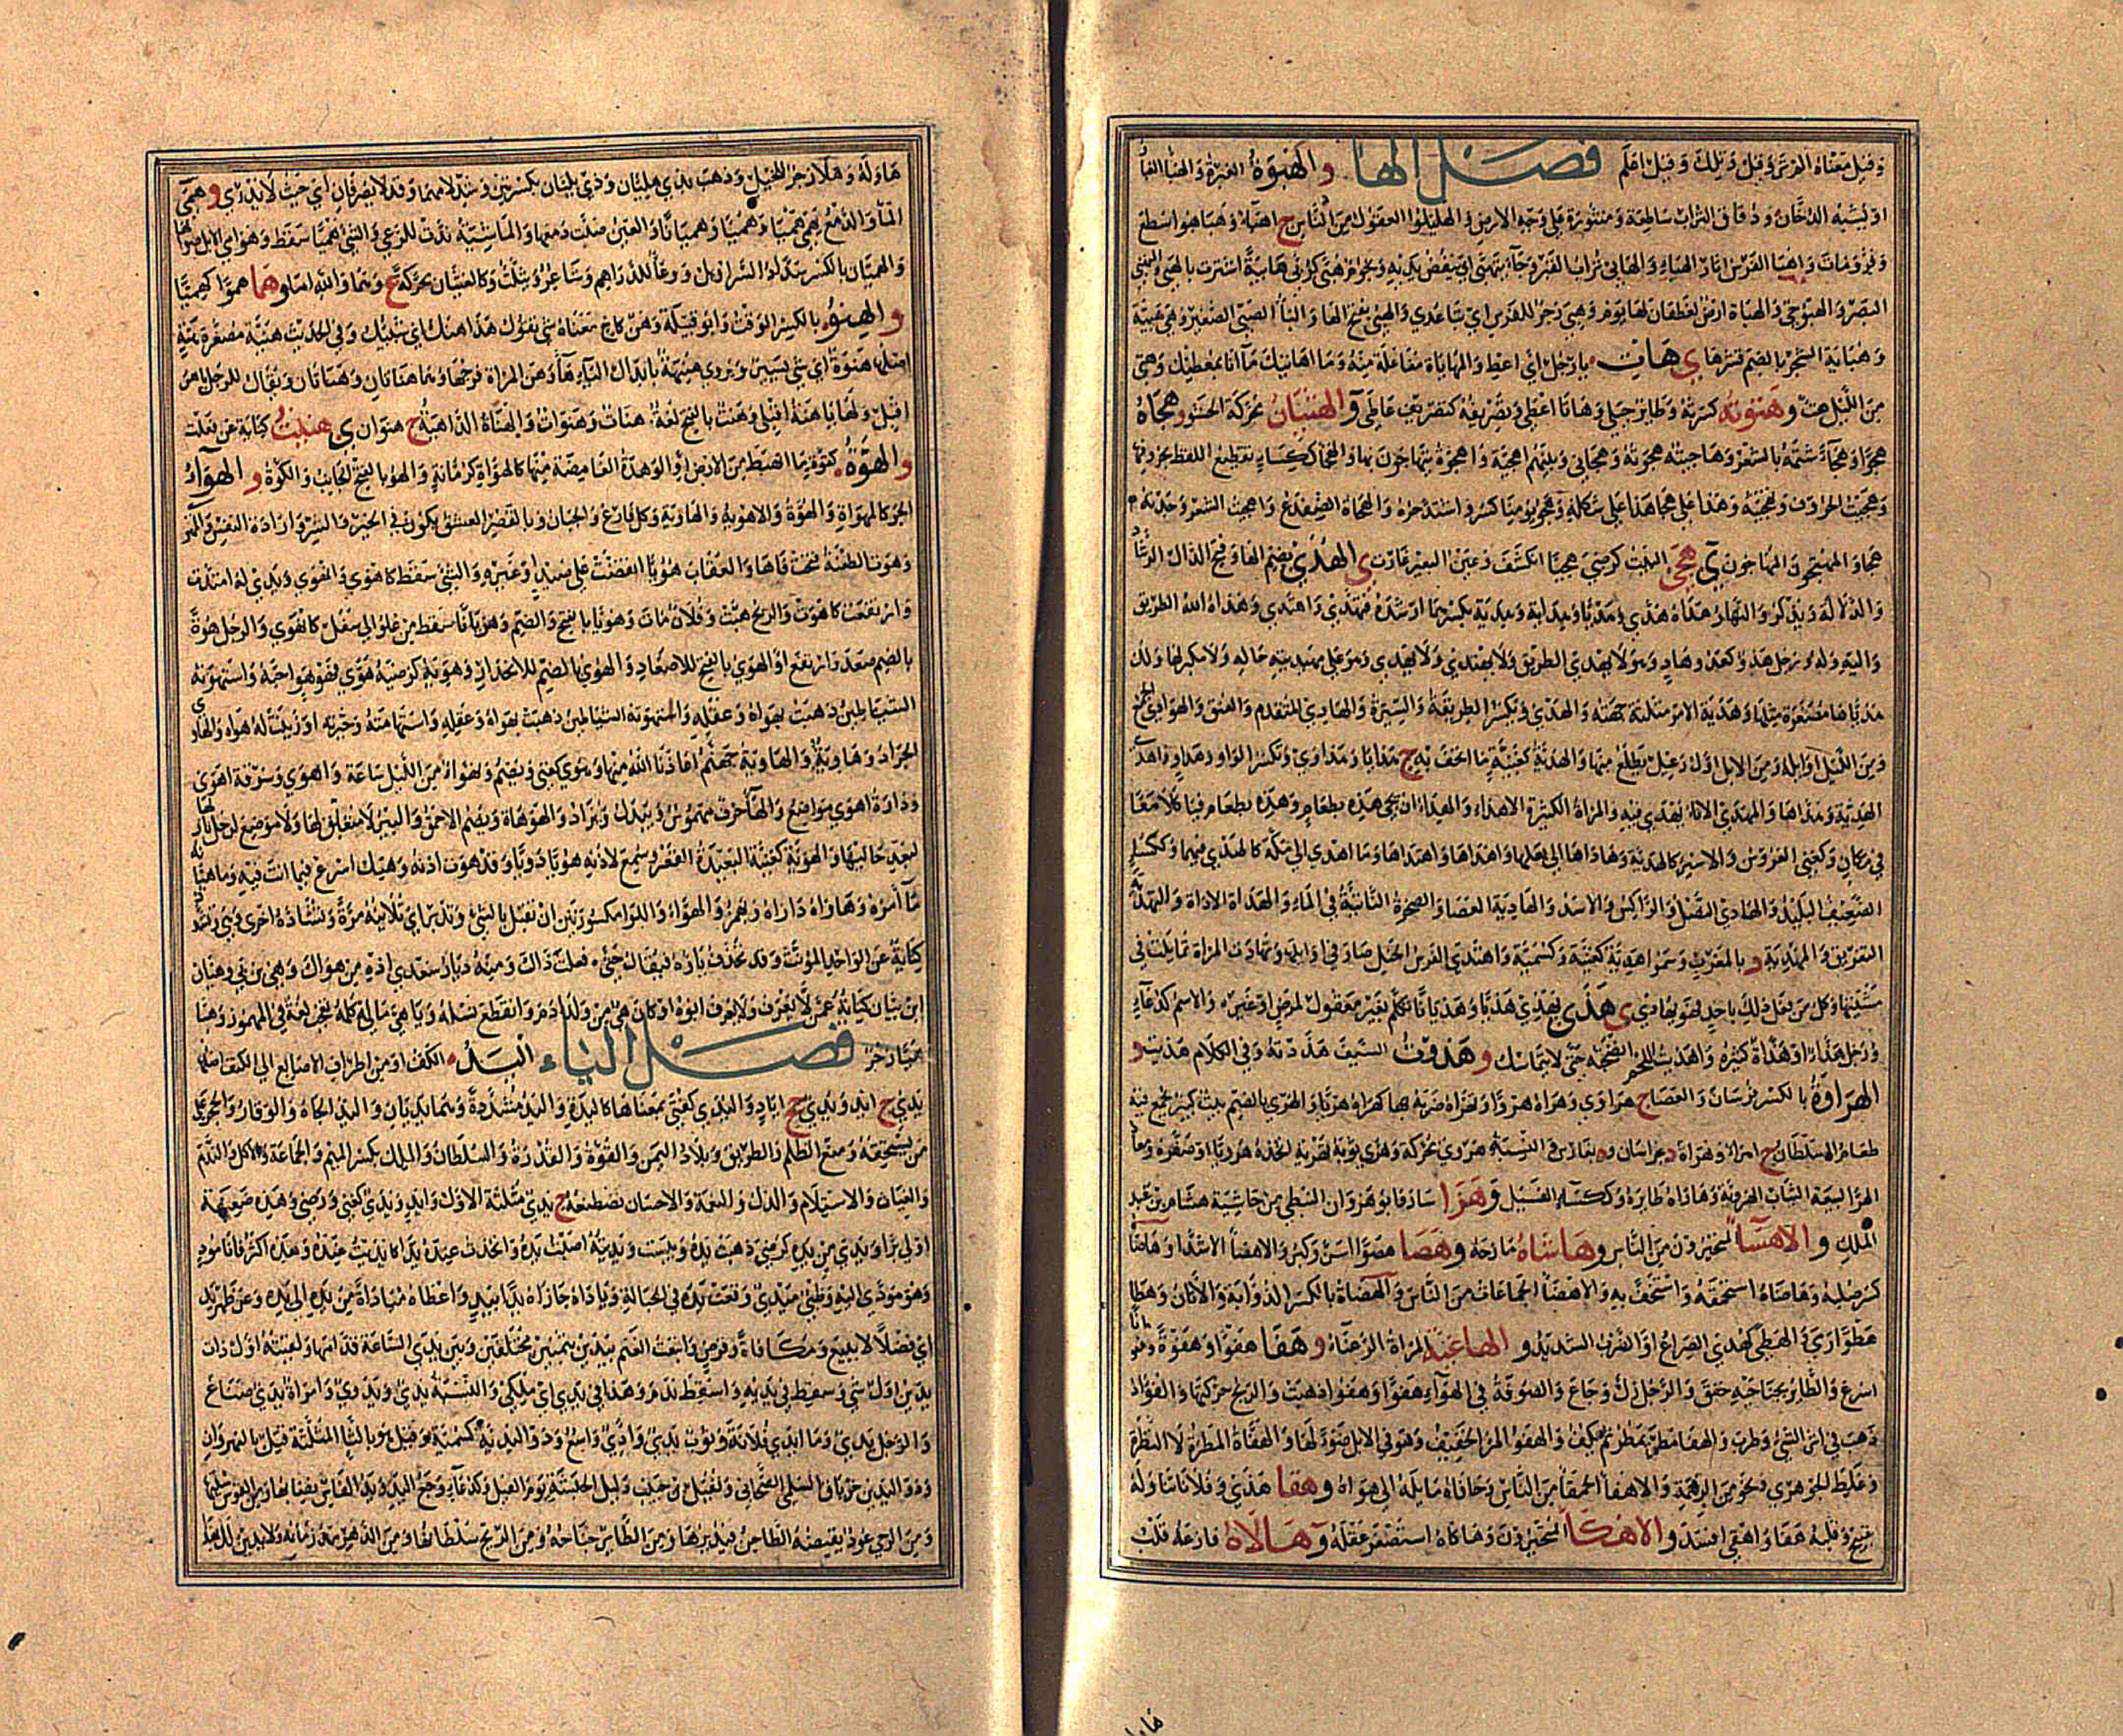 وقيل معناه القرش وقيل ويلك وقيل اعلم فصل الهاء والهبوة الغبرة والهباء الغبار
او يشبه الدخان ودقاق التراب ساطعة ومنثورة على وجه الارض والقليلوا العقول من الناس ج اهباء وهبا هبوا سطع
وفر ومات واهبا الفرس اثار الهباء والهابي تراب القبر وجاء يتهبى اي ينفض يديه ونجوم هبى كربى هابية استترت بالهباء
والهباة ارض لغطفان لها يوم وهبي زجر للفرس اي تباعدي والهبي بفتح الها والبا الصبي الصغير وهي هبية
وهباية الشجر بالضم قشرها ي هات يا رجل اي اعط والمهاتاة مفاعلة منه وما اهاتيك ما انا بمعطيك
من الليل هت و هتوته كسرته هاتا اعطى الهثيان محركة الحثو و هجاه
هجوا وهجاء شتمه بالشعر وهاجيته هجوته وهجاني وبينهم اهجية واهجوة يتهاجون بها والهجا ككساء تقطيع اللفظ بحروفها
وهجيت الحروف وتهجيته وهذا على هجا هذا على شكله وهجو يومنا كسرو اشتد حره والهجاة الضفدع واهجيت الشعر وجدته
هجا والمهتجون المهاجون ي هجي البيت كرضي هجيا انكشف وعين البعير غارت ي الهدى بضم الها وفتح الدال الرشاد
والدلالة ويذكر والنهار هداه هدى وهديا وهداية وهدية بكسرهما ارشده فهتدى واهتدى وهداه الله الطريق
واليه وله ورجل هدو كعدو وهاد وهو لا يهدي الطريق ولا يهتدي ولا يهدي وهو على مهيديته حاله ولا مكبر لها ولك
هدياها مصغرة مثلها وهدية الامر مثلثة جهته والهدى ويكسر الطريقة والسيرة والهادي المتقدم والعنق والهوادي الجمع
ومن الليل اوايله ومن الابل اول رعيل يطلع منها والهدية كغنية ما اتحف به ج هدايا وهداوى وتكسر الواو وهداو واهدى
الهدية وهداها والمهدى الاناء يهدى فيه والمراة الكثيرة الاهداء والهداء ان تجي هذه بطعام وهذه بطعام فيا كلا معا
في مكان وكغني العروس والاسير كالهدية وهداها الى بعلها واهداها واهتداها وما اهدي الى مكة كالهدي فيهما وككساء
الضعيف البليد والهادي النصل والراكس والاسد والهادية العصا والصخرة الناتئة في الماء والهداة الاداة والتهدية
التفريق والمهدية د بالمغرب وسموا هدية كغنية وكسمية واهتدى الفرس الخيل صار في اوايلها وتهادت المراة تمايلت في
مشيتها وكل من فعل ذلك باحد فهو يهاديه ي هذى يهذي هذيا وهذيانا تكلم بغير معقول لمرض او غيره والاسم كدعاء
ورجل هذاء او هذاءة كثيره واهذيت اللحم انضجته حتى لا يتماسك و هذوت السيف هذذته وفي الكلام هذيت و
الهراوة بالكسر فرسان والعصا ج هراوى وهراه هروا وتهراه ضربه بها كهراه هريا والهري بالضم بيت كبير يجمع فيه
طعام السلطان ج اهراء وهراة د بخراسان و ة بفارس والنسبة هروي محركة وهرى ثوبه تهرية اتخذه هرويا او صفره
الثياب الهروية وهاراه طانزه وككساء الفسيل و هزا سار وابو هزوان النبطي من حاشية هشام بن عبد
الملك و الاهساء المتحيرون من الناس و هاشاه مازحه و هصا هصوا اسن وكبر والاهصاء الاشداء وهاصاه
كسر صلبه وهاضاه استحمقه واستخف به والاهضاء الجماعات من الناس والهضاة بالكسر الذؤابة والاتان و هطا
هطوا رمى والهطى كهدى الصراع او الضرب الشديد و الهاغية المراة الرعناء و هفا هفوا وهفوة
اسرع والطاير بجناحيه خفق والرجل زل وجاع والصوفة في الهواء هفوا وهفوا ذهبت والريح حركتها والفؤاد
ذهب في اثر الشي وطرب والهفا مطر يمطر ثم يكف والهفو المر الخفيف وهوافي الابل ضوالها والهفاة المطرة لا النظرة
وغلط الجوهري ونحو من الرهمة والاهفاء الحمقى من الناس وهافاه مايله الى هواه و هقا هذى وفلانا تناوله
بقبيح وقلبه هفا واهقى افسد و الاهكاء المتحيرون وهاكاه استصغر عقله و هالاه فازعه قلب
هاوله وهلا زجر للخيل وذهب بذي هليان وذي بليان بكسرتين وشد لامهما وقد لا يصرفان اي حيث لا يدرى و همى
الماء والدمع يهمي هميا وهميا وهميانا والعين صبت دمعها والماشية ندت للرعي والشي هميا سقط وهوامي الابل ضوالها
والهميان بالكسر شداد السراويل ووعاء للدراهم وشاعر ويثلث وكالغثيان محركة ع وهما والله اما و هما هموا كهميا
و الهنو بالكسر الوقت وابو قبيلة وهن كاخ معناه شي يقول هذا هنك اي شيئك وفي الحديث هنية مصغرة هنة
اصلها هنوة اي شي يسير ويروى هنيهة بابدال الياء هاء وهن المراة فرجها وهما هنانان وهنانان ويقال للرجل يا هن
اقبل ولها يا هنة اقبلي وهنت بالفتح لغة هنات وهنوات والهناة الداهية ج هنوان ي هنيت كناية عن فعلت
و الهوة كقوة ما انهبط من الارض او الوهدة الغامضة منها كالهواة كرمانة والهو بالفتح الجانب والكوة و الهواء
الجو كالمهواة والهوة والاهوية والهاوية وكل فارغ والجبان وبالقصر العشق يكون في الخير والشر وارادة النفس
وهوت الطعنة فتحت فاها والعقاب هويا انقضت على صيد او غيره والشي سقط كاهوى وانهوى ويدي له امتدت
وارتفعت كاهوت والريح هبت وفلان مات وهويا بالفتح والضم وهويانا سقط من علو الى سفل كانهوى والرجل هوة
بالضم صعد وارتفع او الهوي بالفتح للاصعاد والهوي بالضم للانحدار وهويه كرضيه هوى فهو هو احبه واستهوته
الشياطين ذهبت بهواه وعقله واستهوته الشياطين ذهبت بهواه وعقله واستهامته وحيرته او زينت له هواه والهاوي
الجراد وهاوية والهاوية جهنم اعاذنا الله منها وهوي كغني ويضم وتهواء من الليل ساعة واهوى وسوقة اهوى
ودارة اهوى مواضع والهاء حرف مهموس ويبدل ويزاد والهوهاة ويضم الاحمق والبئر لا متعلق لها ولا موضع لرجل نازلها
لبعد جاليها والهوية كغنية البعيدة القعر وسمع لاذنيه هويا دويا وقد هوت اذنه وهيك اسرع فيما انت فيه وما هيانه
ما امره وهاواه داراه ويهمز والهواء واللواء مكسورتين ان تقبل بالشي وتدبر اي تلاينه مرة وتشاده اخرى وهي وتشدد
كناية عن الواحد المؤنث وقد تحذف ياؤه فيقال حتى ه فعلت ذاك ومنه ديار سعدى اذه من هواك وهي بن بي وهيان
ابن بيان كناية عمن لا يعرف ولا يعرف ابوه او كان هي من ولد ادم وانقطع نسله ويا هي مالي كلمة تعجب لغة في المهموز وهيا
هيا زجر فصل الياء اليد الكف او من اطراف الاصابع الى الكتف اصلها
يدي ج ايد ويدي جج اياد واليدي كفتى بمعناها كاليدة واليد مشددة وهما يديان واليد الجاه والوقار والحجر على
من يستحقه ومنع الظلم والطريق وبلاد اليمن والقوة والقدرة والسلطان والملك بكسر الميم والجماعة والاكل والندم
والغياث والاستسلام والذل والنعمة والاحسان تصطنعه ج يدي مثلثة الاول وايد ويدي كعني ورضي وهذه ضعيفة
اولي برا ويدي من يده كرضي ذهبت يده ويبست ويديته اصبت يده واتخذت عنده يدا كايديت عنده وهذه اكثر فانا مود
وهو مودى اليه وظبي ميدي وقعت يده في الحبالة وياداه جازاه يدا بيد واعطاه مياداة من يده الى يده وعن ظهر يد
اي فضلا لا ببيع ومكافاة وقرض وابتعت الغنم بيدين بثمنين مختلفين وبين يدي الساعة قدامها ولقيته اول ذات
يدين اول شي وسقط في يديه واسقط ندم وهذا في يدي اي ملكي والنسبة يدي ويدوي وامراة يدي صناع
والرجل يدي وما ايدى فلانة وثوب يدي وادي واسع وذو اليدية كسمية وقيل هو بالثاء المثلثة قتل بالنهروان
وذو اليدين خرباق السلمي الصحابي ونفيل بن حبيب دليل الحبشة يوم الفيل وكدعاء وجع اليد ويد الفاس نصابها ومن القوس سيتها
ومن الرحى عود يقبضه الطاحن فيديرها ومن الطاير جناحه ومن الريح سلطانها ومن الدهر مد زمانه ولا يدين لك بهذا